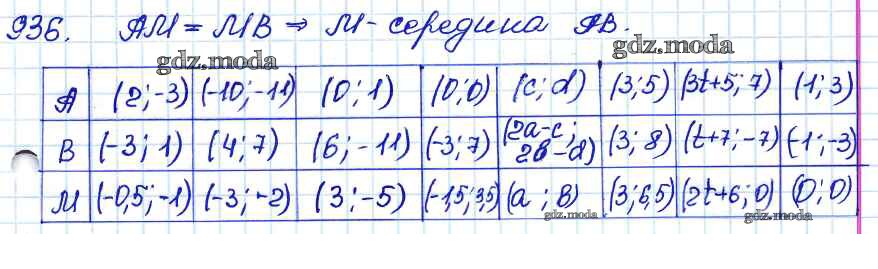 936. AM = MB ⇒ M - середина AB.
gdz.moda gdz.moda
A (2;-3) (-10;-11) (0;1) (0;0) (c;d) (3;5) (3t+5;7) (1;3)
B (-3;1) (4;7) (6;-11) (-3;7) (2a-c; 2в-d) (3;8) (t+7;-7) (-1;-3)
M (-0,5;-1) (-3;-2) (3;-5) (-1,5;3,5) (a;в) (3;6,5) (2t+6;0) (0;0)
gdz.moda gdz.moda